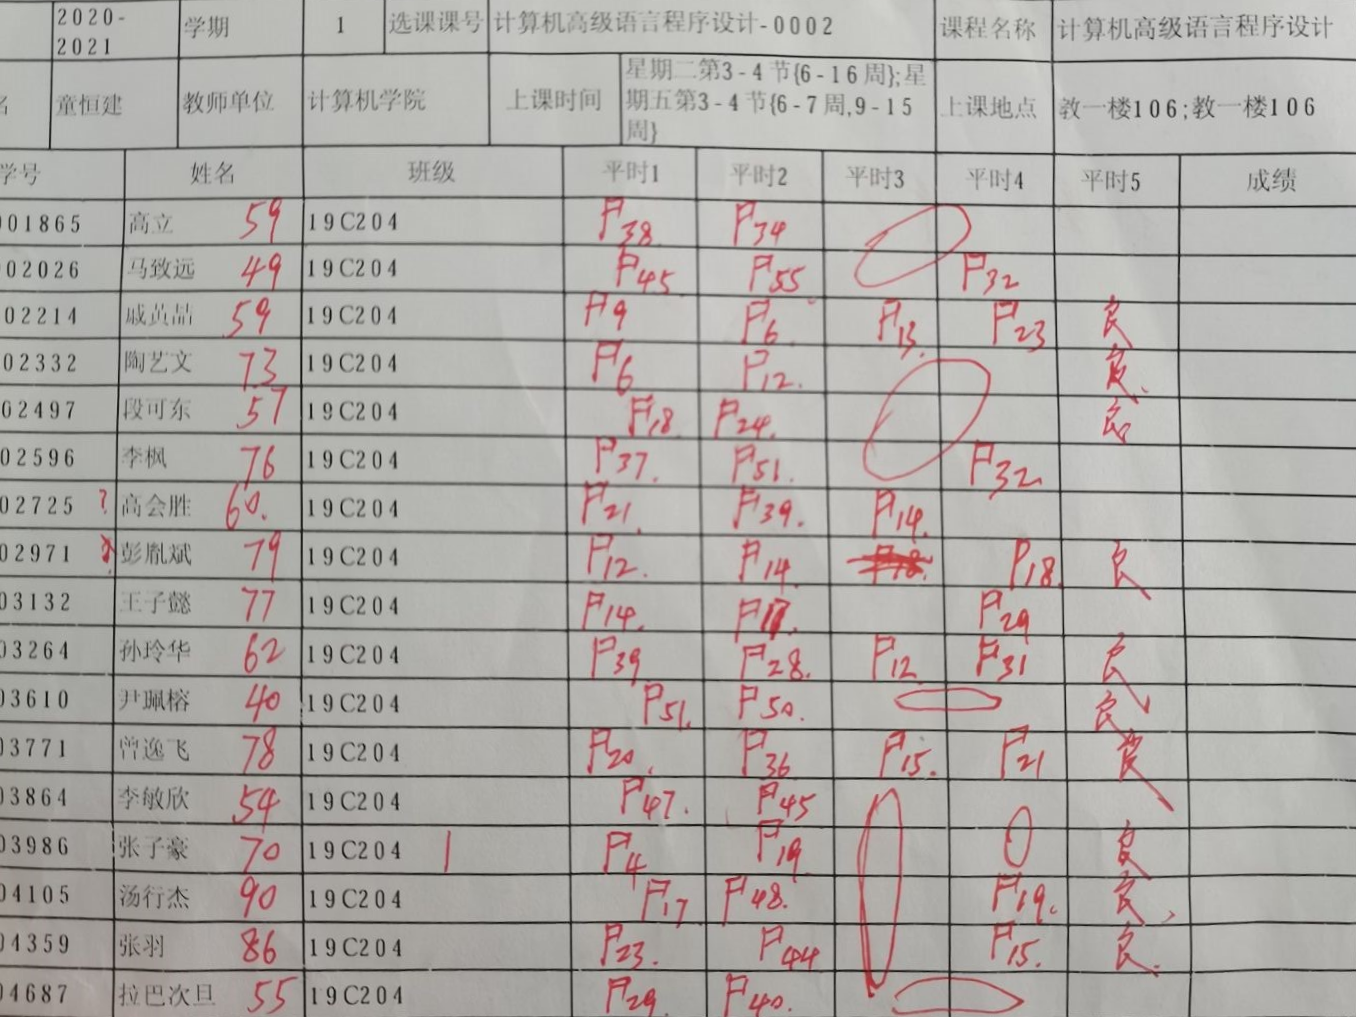 2020-2021 学期 1 选课课号 计算机高级语言程序设计-0002 课程名称 计算机高级语言程序设计
名 童恒建 教师单位 计算机学院 上课时间 星期二第3-4节{6-16周};星期五第3-4节{6-7周,9-15周} 上课地点 教一楼106;教一楼106
学号 姓名 班级 平时1 平时2 平时3 平时4 平时5 成绩
001865 高立 59 19C204 P38 P34
002026 马致远 49 19C204 P45 P55 P32
02214 戚黄喆 59 19C204 P9 P6 P13 P23 良
02332 陶艺文 73 19C204 P6 P12 良
02497 段可东 57 19C204 P18 P24 良
02596 李枫 76 19C204 P37 P51 P32
02725 ? 高会胜 60 19C204 P21 P39 P14
02971 彭胤斌 79 19C204 P12 P14 P18 良
03132 王子懿 77 19C204 P14 P29
03264 孙玲华 62 19C204 P39 P28 P12 P31 良
03610 尹珮榕 40 19C204 P51 P50 良
03771 曾逸飞 78 19C204 P20 P36 P15 P21 良
03864 李敏欣 54 19C204 P47 P45
03986 张子豪 70 19C204 P4 P19 良
04105 汤行杰 90 19C204 P17 P48 P19 良
04359 张羽 86 19C204 P23 P44 P15 良
04687 拉巴次旦 55 19C204 P29 P40